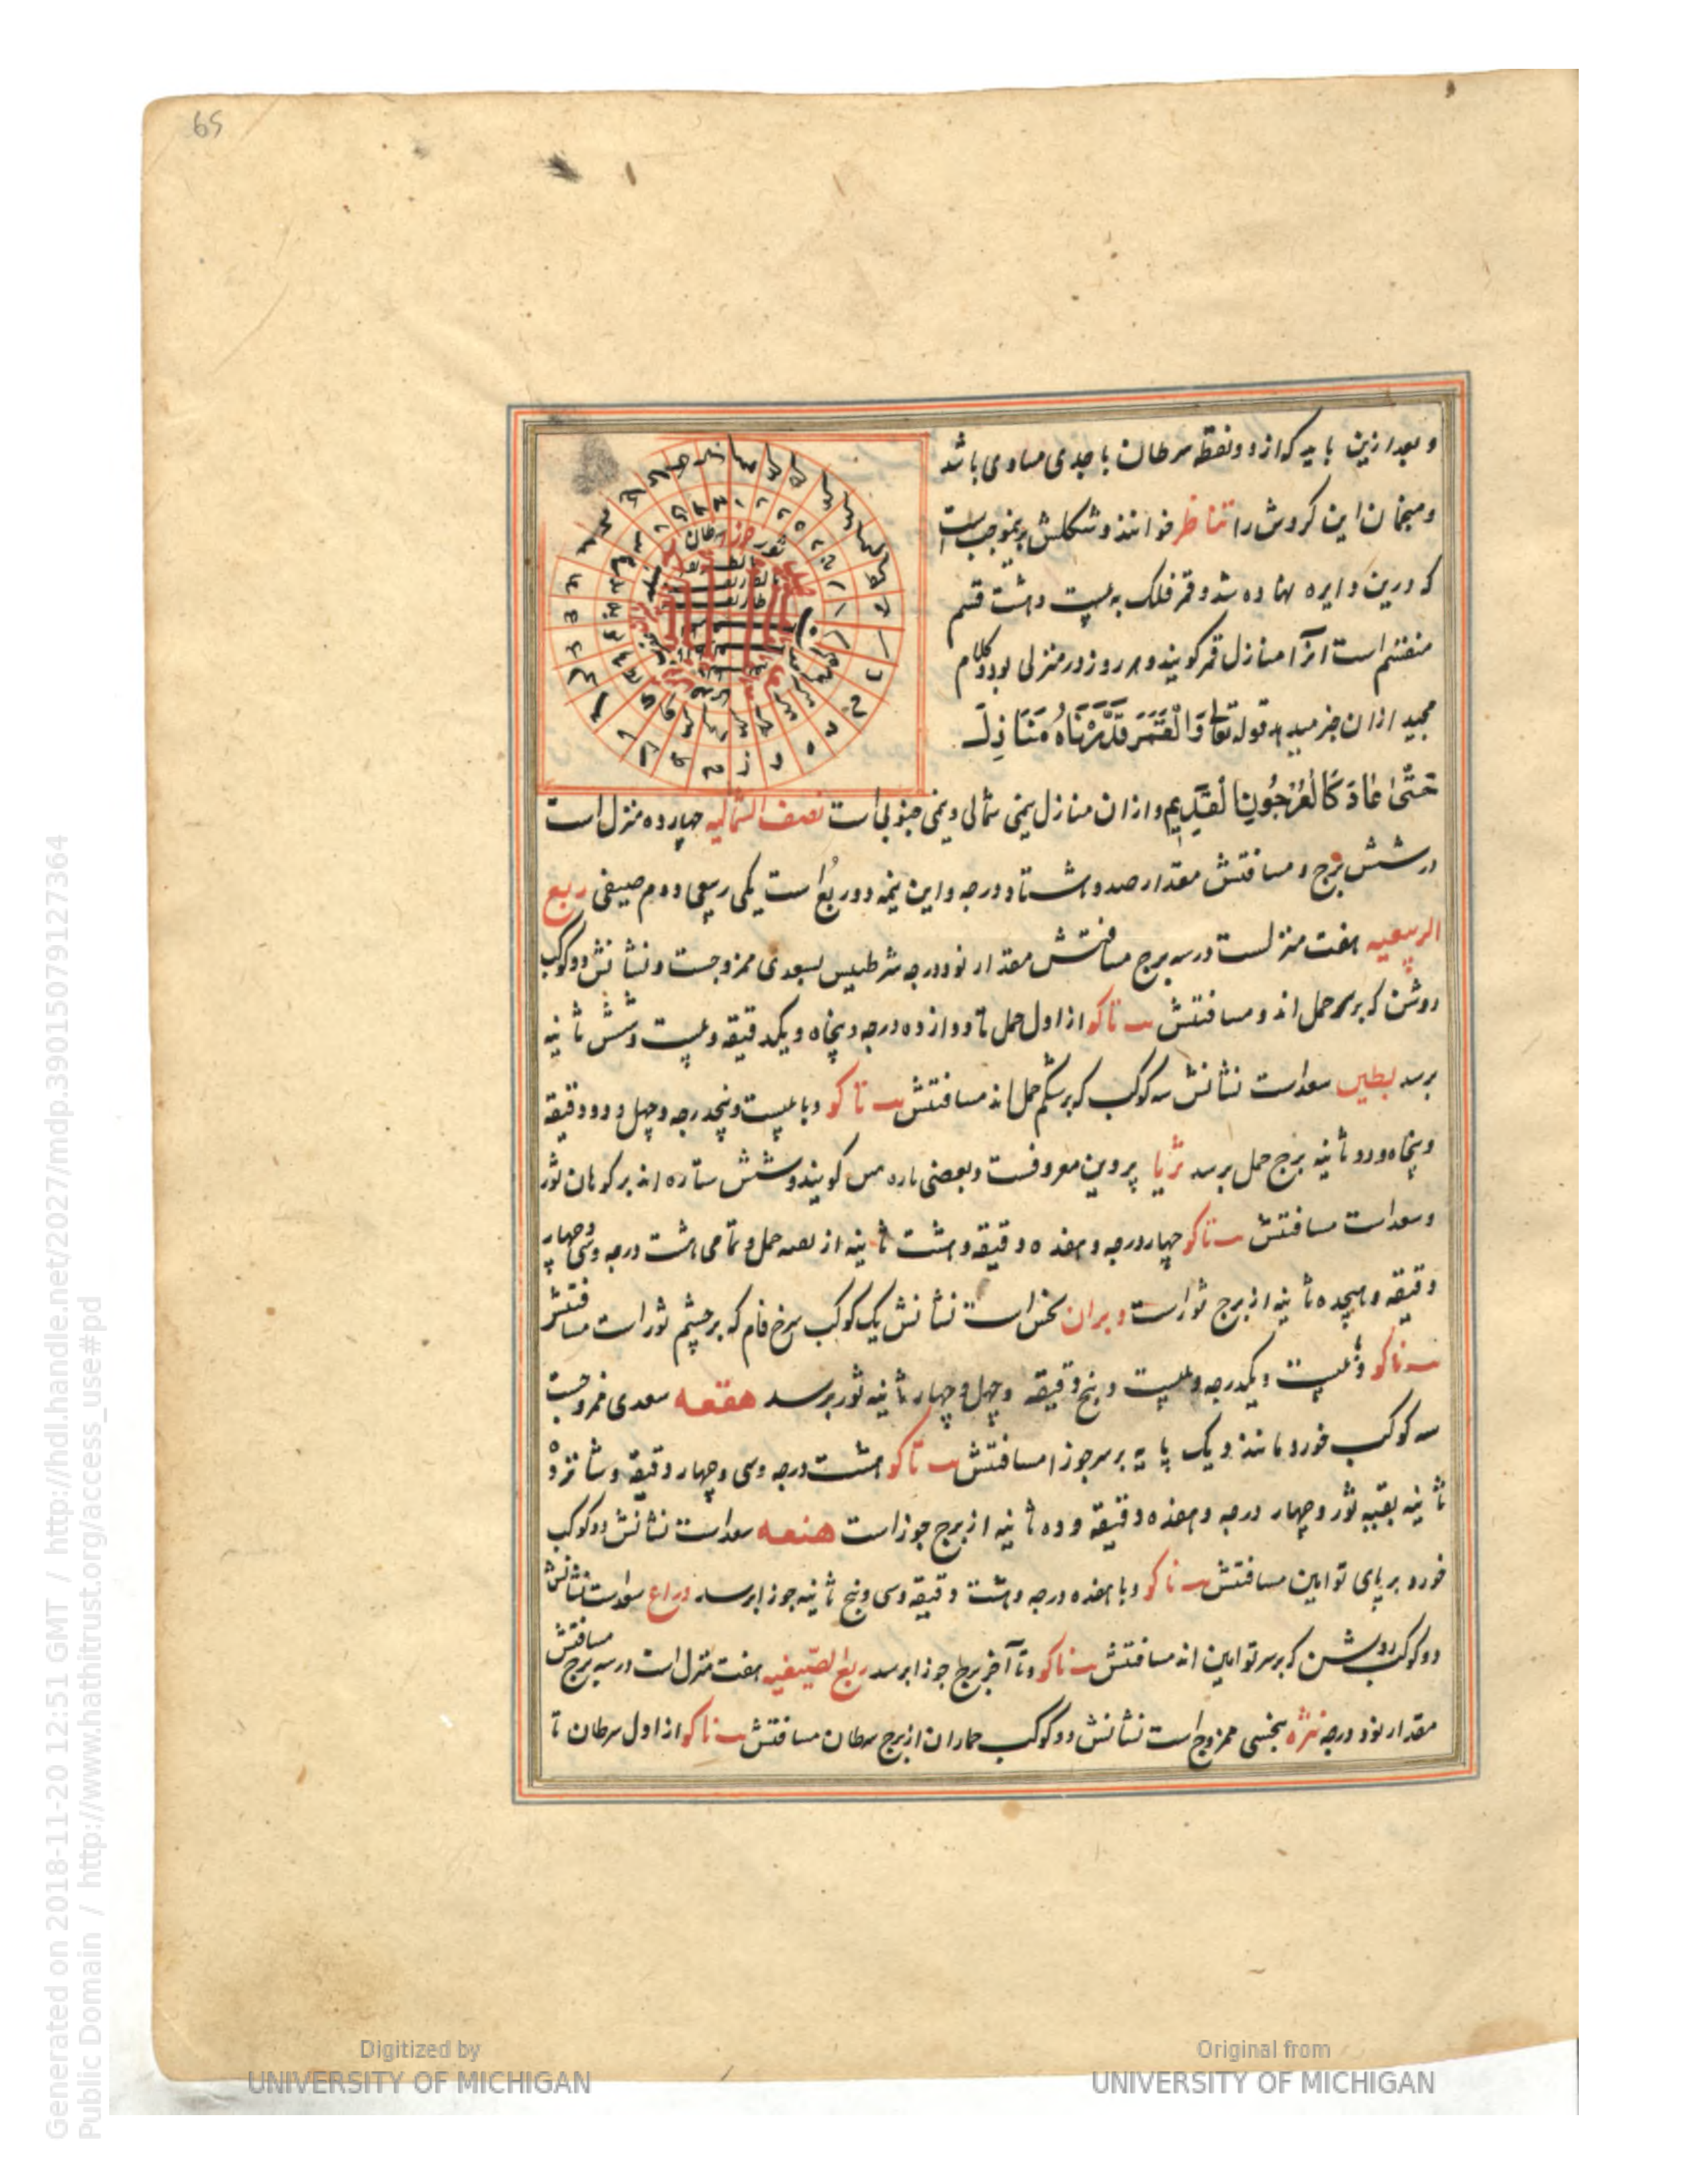 65
و بعد ازین باید که از دو نقطه سرطان با جدی مساوی باشد
و منجمان این کروش را تناظر خوانند و شکلش برینموجب است
که درین دایره نهاده شد و قمر فلک به بیست و هشت قسم
منقسم است آنرا منازل قمر کویند و هر روز در منزلی بود و کلام
مجید ازان خبر میدهد قوله تعالی وَالْقَمَرَ قَدَّرْنَاهُ مَنَازِلَ
حَتَّىٰ عَادَ كَالْعُرْجُونِ الْقَدِيمِ و ازان منازل نیمی شمالی و نیمی جنوبی است نصف الشمالیه چهارده منزل است
در شش برج و مسافتش مقدار صد و هشتاد درجه و این نیمه دو ربع است یکی ربیعی و دوم صیفی ربع
الربیعیه هفت منزلست در سه برج مسافتش مقدار نود درجه شرطین بسعدی ممزوجست و نشانش دو کوکب
روشن که بر سر حمل اند و مسافتش ب نا کو از اول حمل تا دوازده درجه و پنجاه و یکدقیقه و بیست و شش ثانیه
برسد بطین سعد است نشانش سه کوکب که بر شکم حمل اند مسافتش ب نا کو و با بیست و پنجدرجه و چهل و دو دقیقه
و پنجاه و دو ثانیه برج حمل برسد ثریا پروین معروفست و بعضی کویند و شش ستاره اند بر کوهان ثور
و سعد است مسافتش ب نا کو چهار درجه و هفده دقیقه و هشت ثانیه از حمل و تمامی هشت درجه و سی و چهار
دقیقه و هیجده ثانیه از برج ثور است دبران نحس است نشانش یک کوکب سرخ فام که بر چشم ثور است مسافتش
ب نا کو و بیست و یکدرجه و بیست و پنج دقیقه و چهل و چهار ثانیه ثور برسد هقعه سعدی ممزوجست
سه کوکب خورد مانند دیک پایه بر سر جوزا مسافتش ب نا کو هشت درجه و سی و چهار دقیقه و شانزده
ثانیه بقیه ثور و چهار درجه و هفده دقیقه و ده ثانیه از برج جوزا است هنعه سعد است نشانش دو کوکب
خورد بر پای توامین مسافتش ب نا کو و با هفده درجه و هشت دقیقه و سی و پنج ثانیه جوزا برسد ذراع سعد است نشانش
دو کوکب روشن که بر سر توامین اند مسافتش ب نا کو و تا آخر برج جوزا برسد ربع الصیفیه هفت منزل است در سه برج مسافتش
مقدار نود درجه نثره بنحسی ممزوج است نشانش دو کوکب حماران از برج سرطان مسافتش ب نا کو از اول سرطان تا
Generated on 2018-11-20 12:51 GMT / http://hdl.handle.net/2027/mdp.39015079127364
Public Domain / http://www.hathitrust.org/access_use#pd
Digitized by
UNIVERSITY OF MICHIGAN
Original from
UNIVERSITY OF MICHIGAN